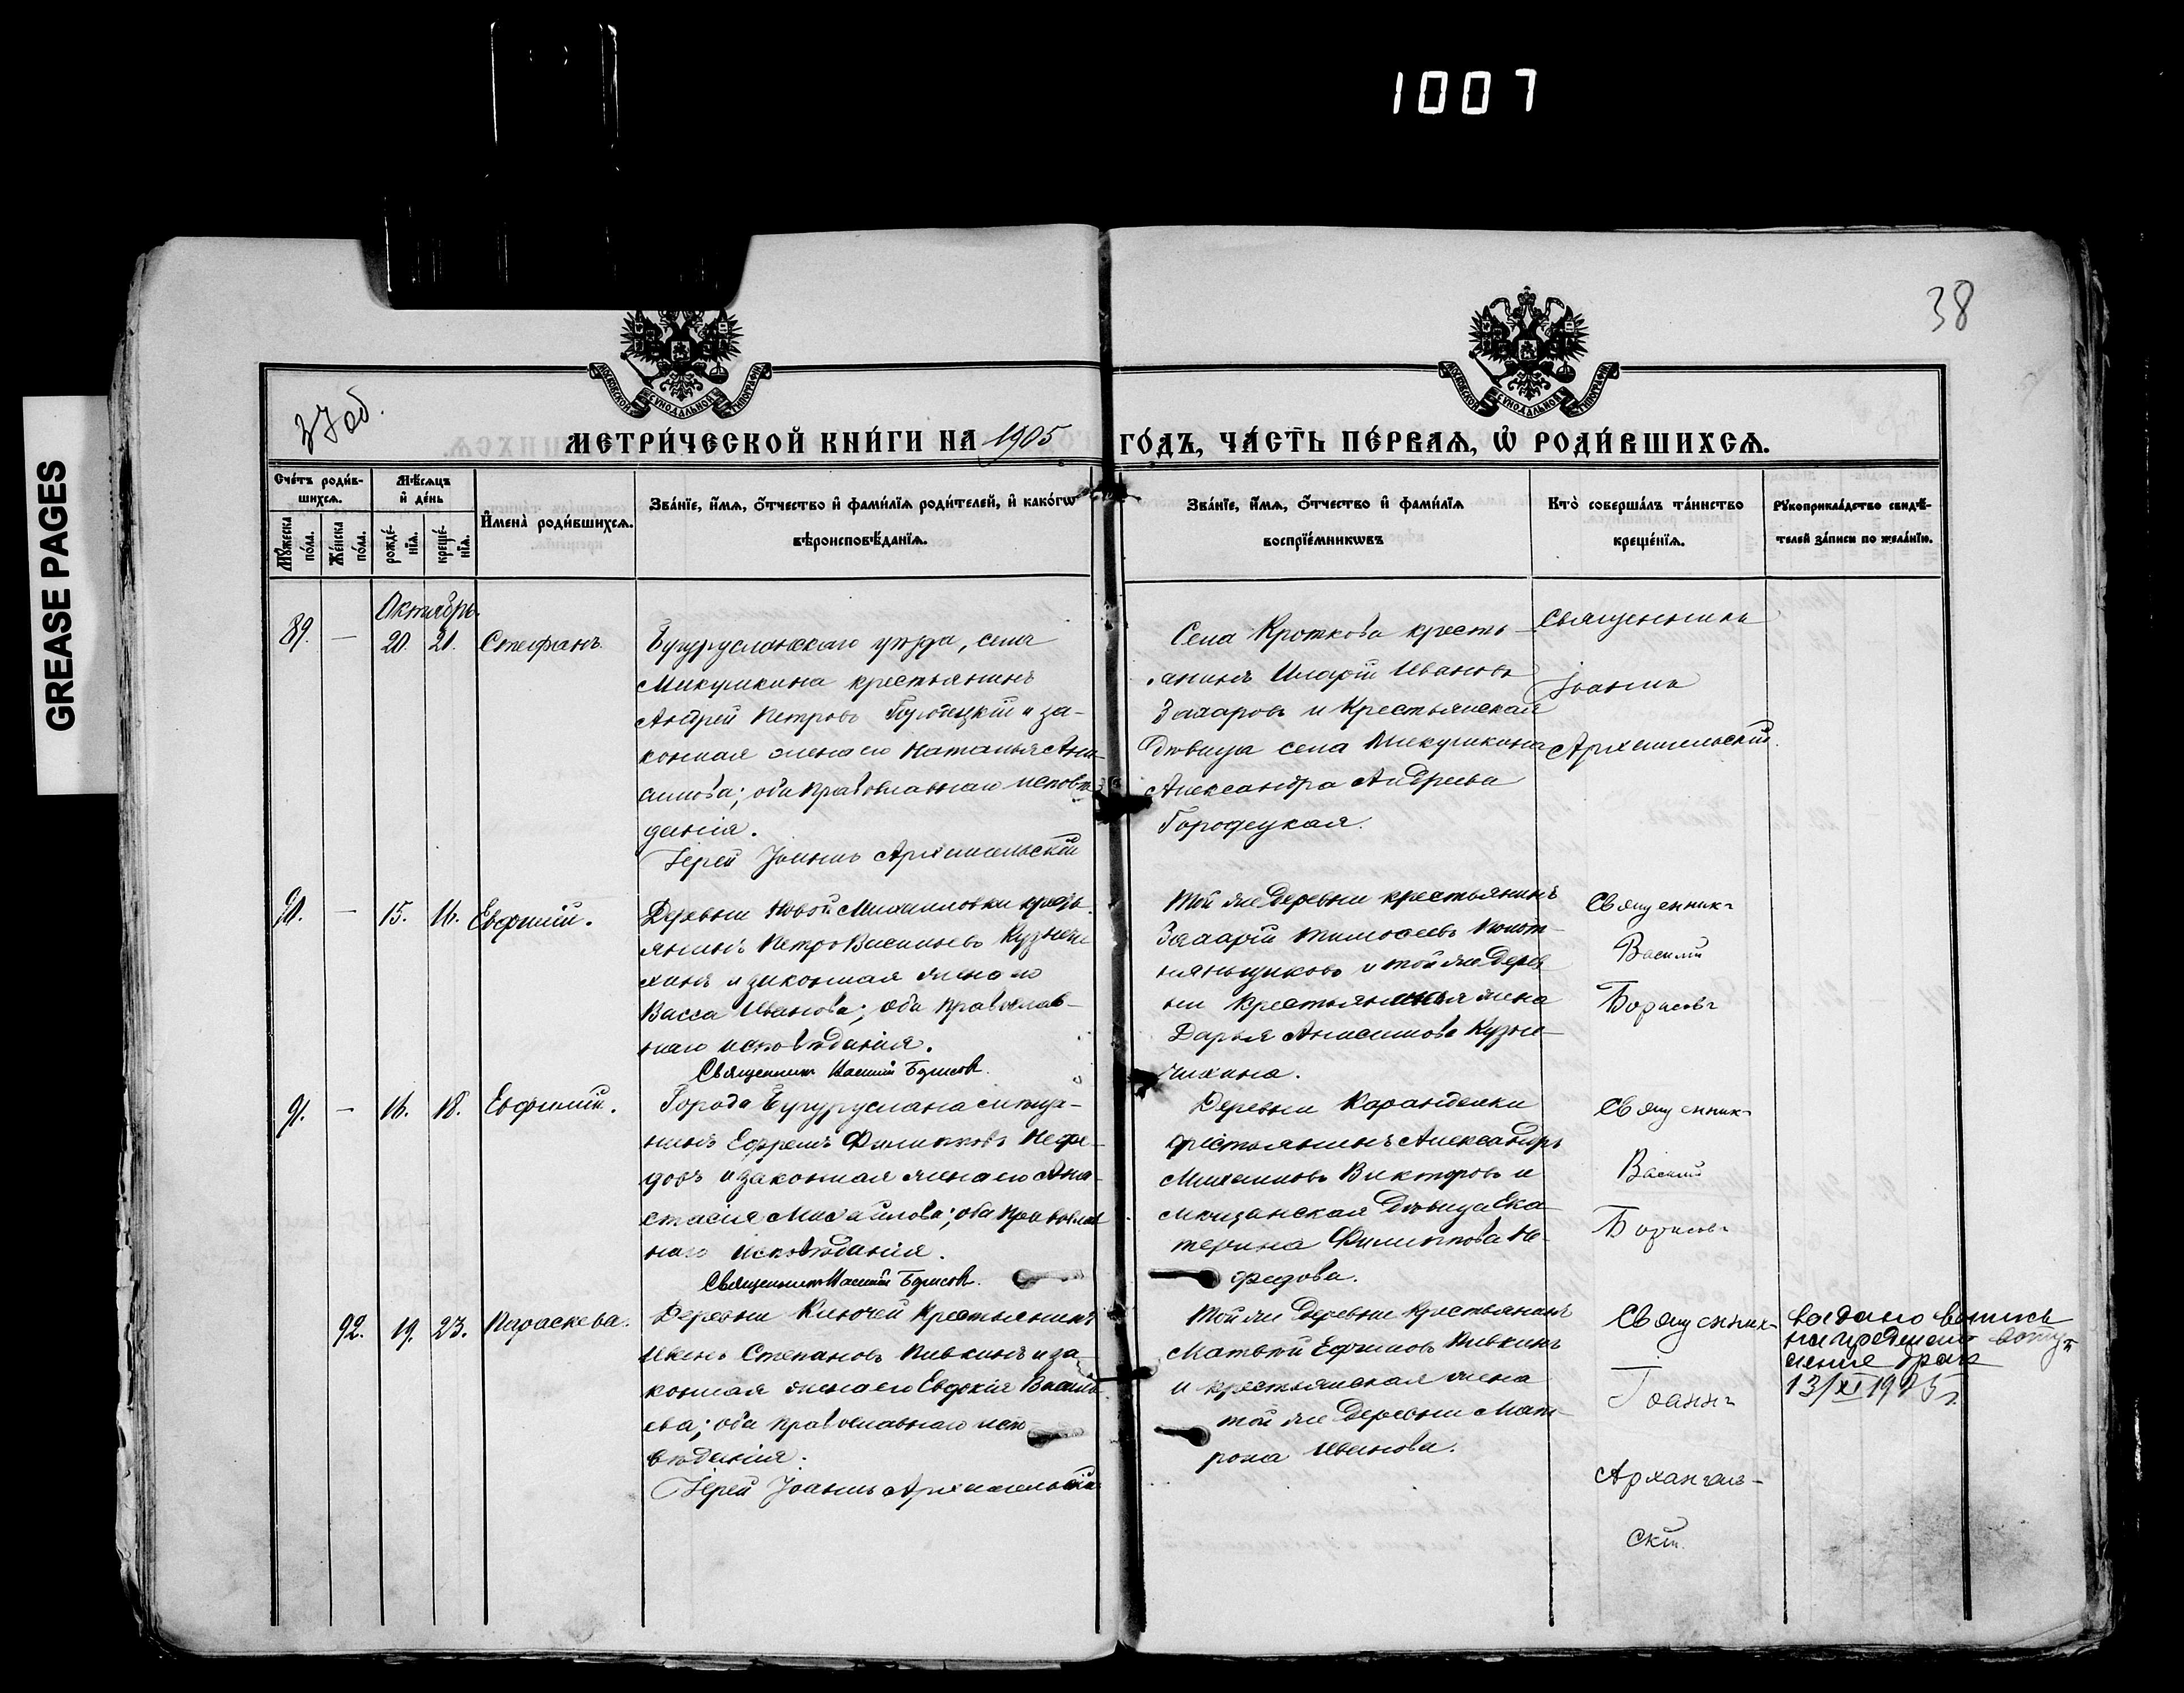 1007
GREASE PAGES
38
37 об.
МОСКОВСКОЙ СѴНОДАЛЬНОЙ ТИПОГРАФІИ
МОСКОВСКОЙ СѴНОДАЛЬНОЙ ТИПОГРАФІИ
МЕТРИ́ЧЕСКОЙ КНИ́ГИ НА 1905 ГО́ДЪ, ЧА́СТЬ ПЕ́РВАѦ, Ѡ҆ РОДИ́ВШИХСѦ.
Сче́тъ роди́в-
шихсѧ.
Мꙋ́жеска по́ла.
Же́нска по́ла.
Мѣ́сѧцъ
и҆ де́нь
рожде́нїѧ.
креще́нїѧ.
И҆мена̀ роди́вшихсѧ.
Зва́нїе, и҆́мѧ, ѻ҆́тчество и҆ фами́лїѧ роди́телей, и҆ како́гѡ
вѣроисповѣ́данїѧ.
Зва́нїе, и҆́мѧ, ѻ҆́тчество и҆ фами́лїѧ
воспрїе́мникѡвъ
Кто̀ соверша́лъ та́инство
креще́нїѧ.
Рꙋкоприкла́дство свидѣ́-
телей за́писи по жела́нїю.
Октябрь.
89. — 20. 21. Стефанъ.
Бугурусланскаго уѣзда, села
Микушкина крестьянинъ
Андрей Петровъ Городецкій и за-
конная жена его Наталья Ани-
симова; оба православнаго исповѣ-
данія.
Іерей Іоаннъ Архангельскій
Села Кроткова кресть-
янинъ Иларій Ивановъ
Захаровъ и крестьянская
дѣвица села Микушкина
Александра Андреева
Городецкая.
Священникъ
Іоаннъ
Архангельскій.
90. — 15. 16. Евфимій.
Деревни Новой Михайловки кресть-
янинъ Петръ Васильевъ Кузнечи-
хинъ и законная жена его
Васса Иванова; оба православ-
наго исповѣданія.
Священникъ Василій Борисовъ.
Той же деревни крестьянинъ
Захарій Тимофеевъ
и той же дерев
ни крестьянская жена
Дарья Анисимова Кузне-
чихина.
Священникъ
Василій
Борисовъ
91. — 16. 18. Евфимій.
Города Бугуруслана мѣща-
нинъ Ефремъ Филипповъ Нефе-
довъ и законная жена его Ана-
стасія Михайлова; оба православ
наго исповѣданія.
Священникъ Василій Борисовъ.
Деревни
крестьянинъ Александръ
Михайловъ Викторовъ и
мѣщанская дѣвица Ека
терина Филиппова Не-
федова.
Священникъ
Василій
Борисовъ
92. 19. 23. Параскева.
Деревни Ключей крестьянинъ
Степановъ Пивкинъ и за
конная жена его Евдокія Василь
ева; оба православнаго испо-
вѣданія.
Іерей Іоаннъ Архангельскій
Той же деревни крестьянинъ
Матвѣй Ефимовъ Пивкинъ
и крестьянская жена
той же деревни Мат-
рона Иванова.
Священникъ
Іоаннъ
Архангель-
скій.
выдано выпись
на предметъ вступ
ленія бракъ
13/XI